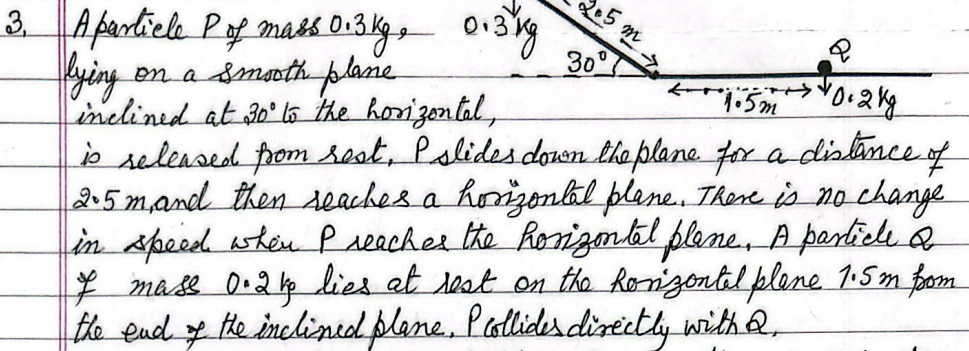 3. A particle P of mass 0.3 kg, 0.3 kg 2.5 m
lying on a smooth plane 30° Q
inclined at 30° to the horizontal, 1.5m 0.2 kg
is released from rest. P slides down the plane for a distance of
2.5 m, and then reaches a horizontal plane. There is no change
in speed when P reaches the horizontal plane. A particle Q
of mass 0.2 kg lies at rest on the horizontal plane 1.5 m from
the end of the inclined plane. P collides directly with Q.